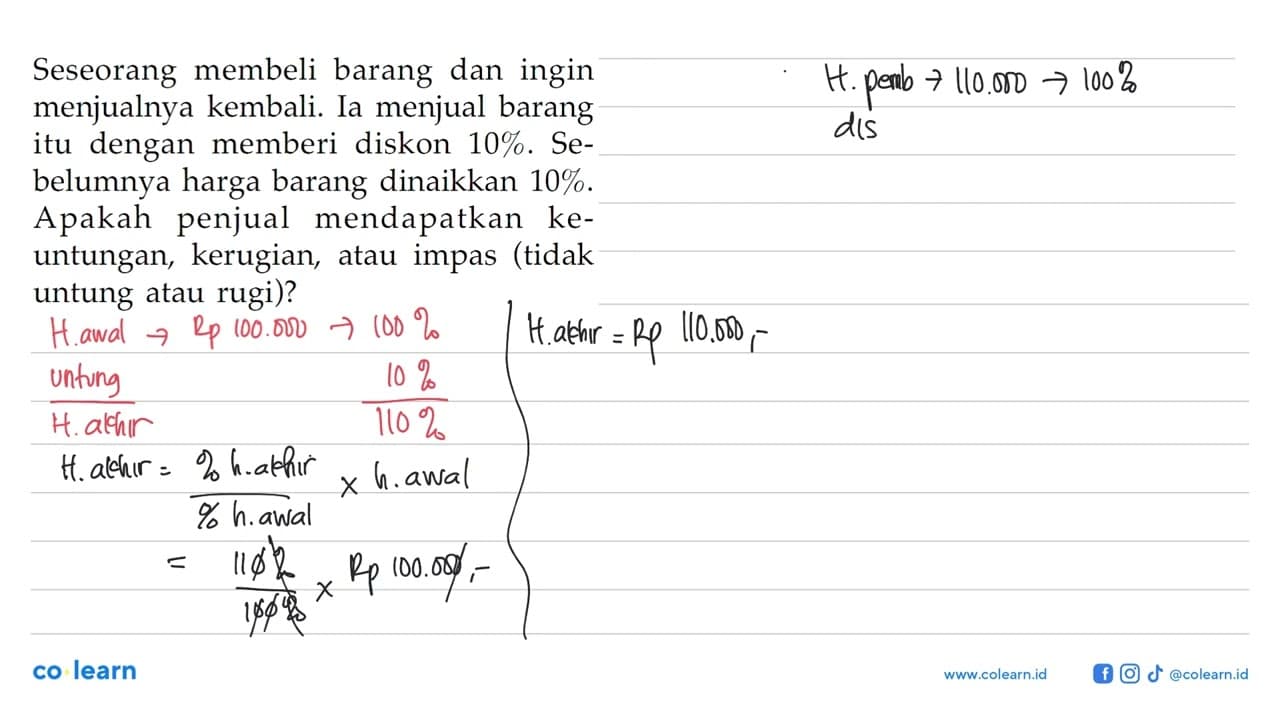 Seseorang membeli barang dan ingin
menjualnya kembali. Ia menjual barang
itu dengan memberi diskon 10%. Se-
belumnya harga barang dinaikkan 10%.
Apakah penjual mendapatkan ke-
untungan, kerugian, atau impas (tidak
untung atau rugi)?
H.awal → Rp 100.000 → 100%
untung 10%
H.akhir 110%
H.akhir = % h.akhir / % h.awal × h.awal
= 110% / 100% × Rp 100.000,-
H.akhir = Rp 110.000,-
H. pemb → 110.000 → 100%
dis
co learn
www.colearn.id
@colearn.id